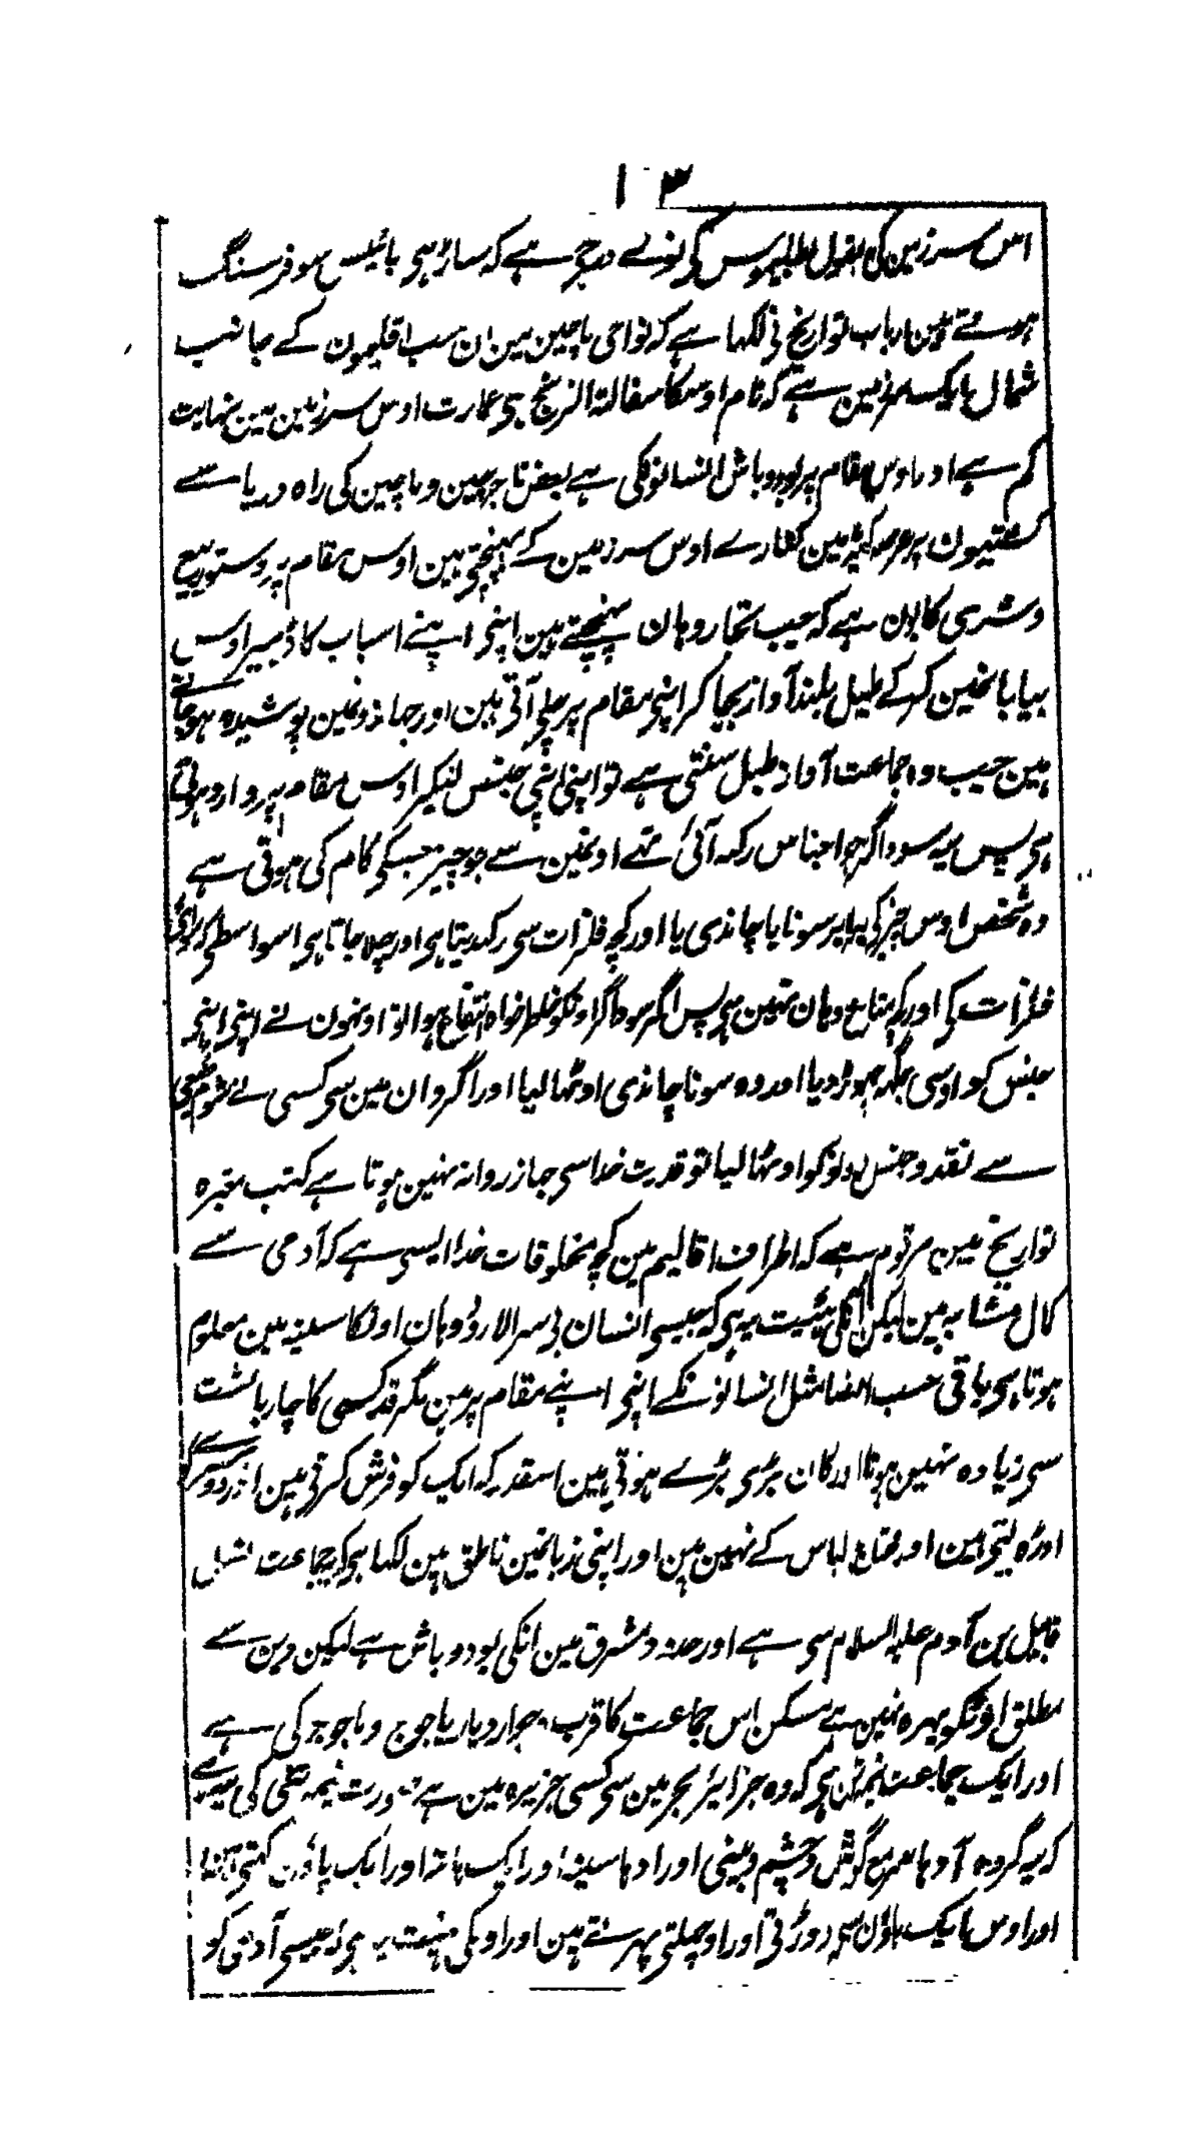 ۱۳
اس سرزمین کی بقول بطلیموس کی نوے درجہ ہے کہ ساڑہی بائیس سو فرسنگ
ہوتے ہین ارباب تواریخ نی لکہا ہے کہ نواحی ماچین مین ان سب اقلیمون کے جانب
شمال ایک سرزمین ہے کہ نام اوسکا سفالۃ الزنج ہی عمارت اوس سرزمین مین نہایت
کم ہے اور اوس مقام پر بود و باش انسانونکی ہے بعض تاجر چین و ماچین کی راہ دریا سے
کشتیون پر عرصہ کثیر مین کنارے اوس سرزمین کے پہنچتی ہین اوس مقام پر دستور بیع
و شری کا یون ہے کہ جب تجار وہان پہنچتے ہین اپنی اپنے اسباب کا ڈہیر اوس
بیابانمین کر کے طبل بلند آواز بجا کر اپنی مقام پر چلی آتی ہین اور جہازونمین پوشیدہ ہو جاتے
ہین جب وہ جماعت آواز طبل سنتی ہے تو اپنی اپنی جنس لیکر اوس مقام پر وارد ہوتی
ہی پس یہ سوداگر جو اجناس رکہہ آئی تہے اونمین سے جو چیز جسکی کام کی ہوتی ہے
وہ شخص اوس چیز کی برابر سونا یا چاندی یا اور کچہ فلزات سی رکہدیتا ہی اور چلا جاتا ہی اسواسطی کہ سوائ
فلزات کی اور کچہ متاع وہان نہین ہی پس اگر سوداگر اونکو خاطر خواہ انتفاع ہوا تو اونہون نے اپنی اپنی
جنس کو اوسی جگہہ چہوڑ دیا اور وہ سونا چاندی اوٹہا لیا اور اگر وان مین سی کسی نے شوم طبعی
سے نقد و جنس دونوکو اوٹہا لیا تو قدرت خدا سی جہاز روانہ نہین ہوتا ہے کتب معتبرہ
تواریخ مین مرقوم ہے کہ اطراف اقالیم مین کچہ مخلوقات خدا ایسی ہے کہ آدمی سے
کمال مشابہ ہین لیکن انکی ہیئت یہ ہی کہ جیسی انسان بی سر الا رو و دہان اونکا سینہ مین معلوم
ہوتا ہی باقی سب اعضا مثل انسانونکے اپنی اپنے مقام پر ہین مگر قد کسی کا چار بالشت
سی زیادہ نہین ہوتا اور کان بڑی بڑے ہوتی ہین اسقدر کہ ایک کو فرش کرتی ہین اور دوسرے کو
اوڑہ لیتی ہین اور محتاج لباس کے نہین ہین اور اپنی زبانمین ناطق ہین لکہا ہی کہ یہ جماعت نسل
قابیل بن آدم علیہ السلام سی ہے اور حدود مشرق مین انکی بود و باش ہے لیکن دین سے
مطلق اونکو بہرہ نہین ہے مسکن اس جماعت کا قرب و جوار دیار یاجوج و ماجوج کی ہے
اور ایک جماعت نیمہ تن ہی کہ وہ جزایر بحر مین سی کسی جزیرہ مین ہے صورت نیمہ تنی کی یہ ہے
کہ یہ گروہ آدہا سر مع گوش و چشم و بینی اور آدہا سینہ اور ایک ہاتہ اور ایک پاؤن رکہتی ہین
اور اوس ایک پاؤن سی دوڑتی اور اوچہلتی پہرتے ہین اور اونکی ہیئت یہ ہی کہ جیسی آدمی کو